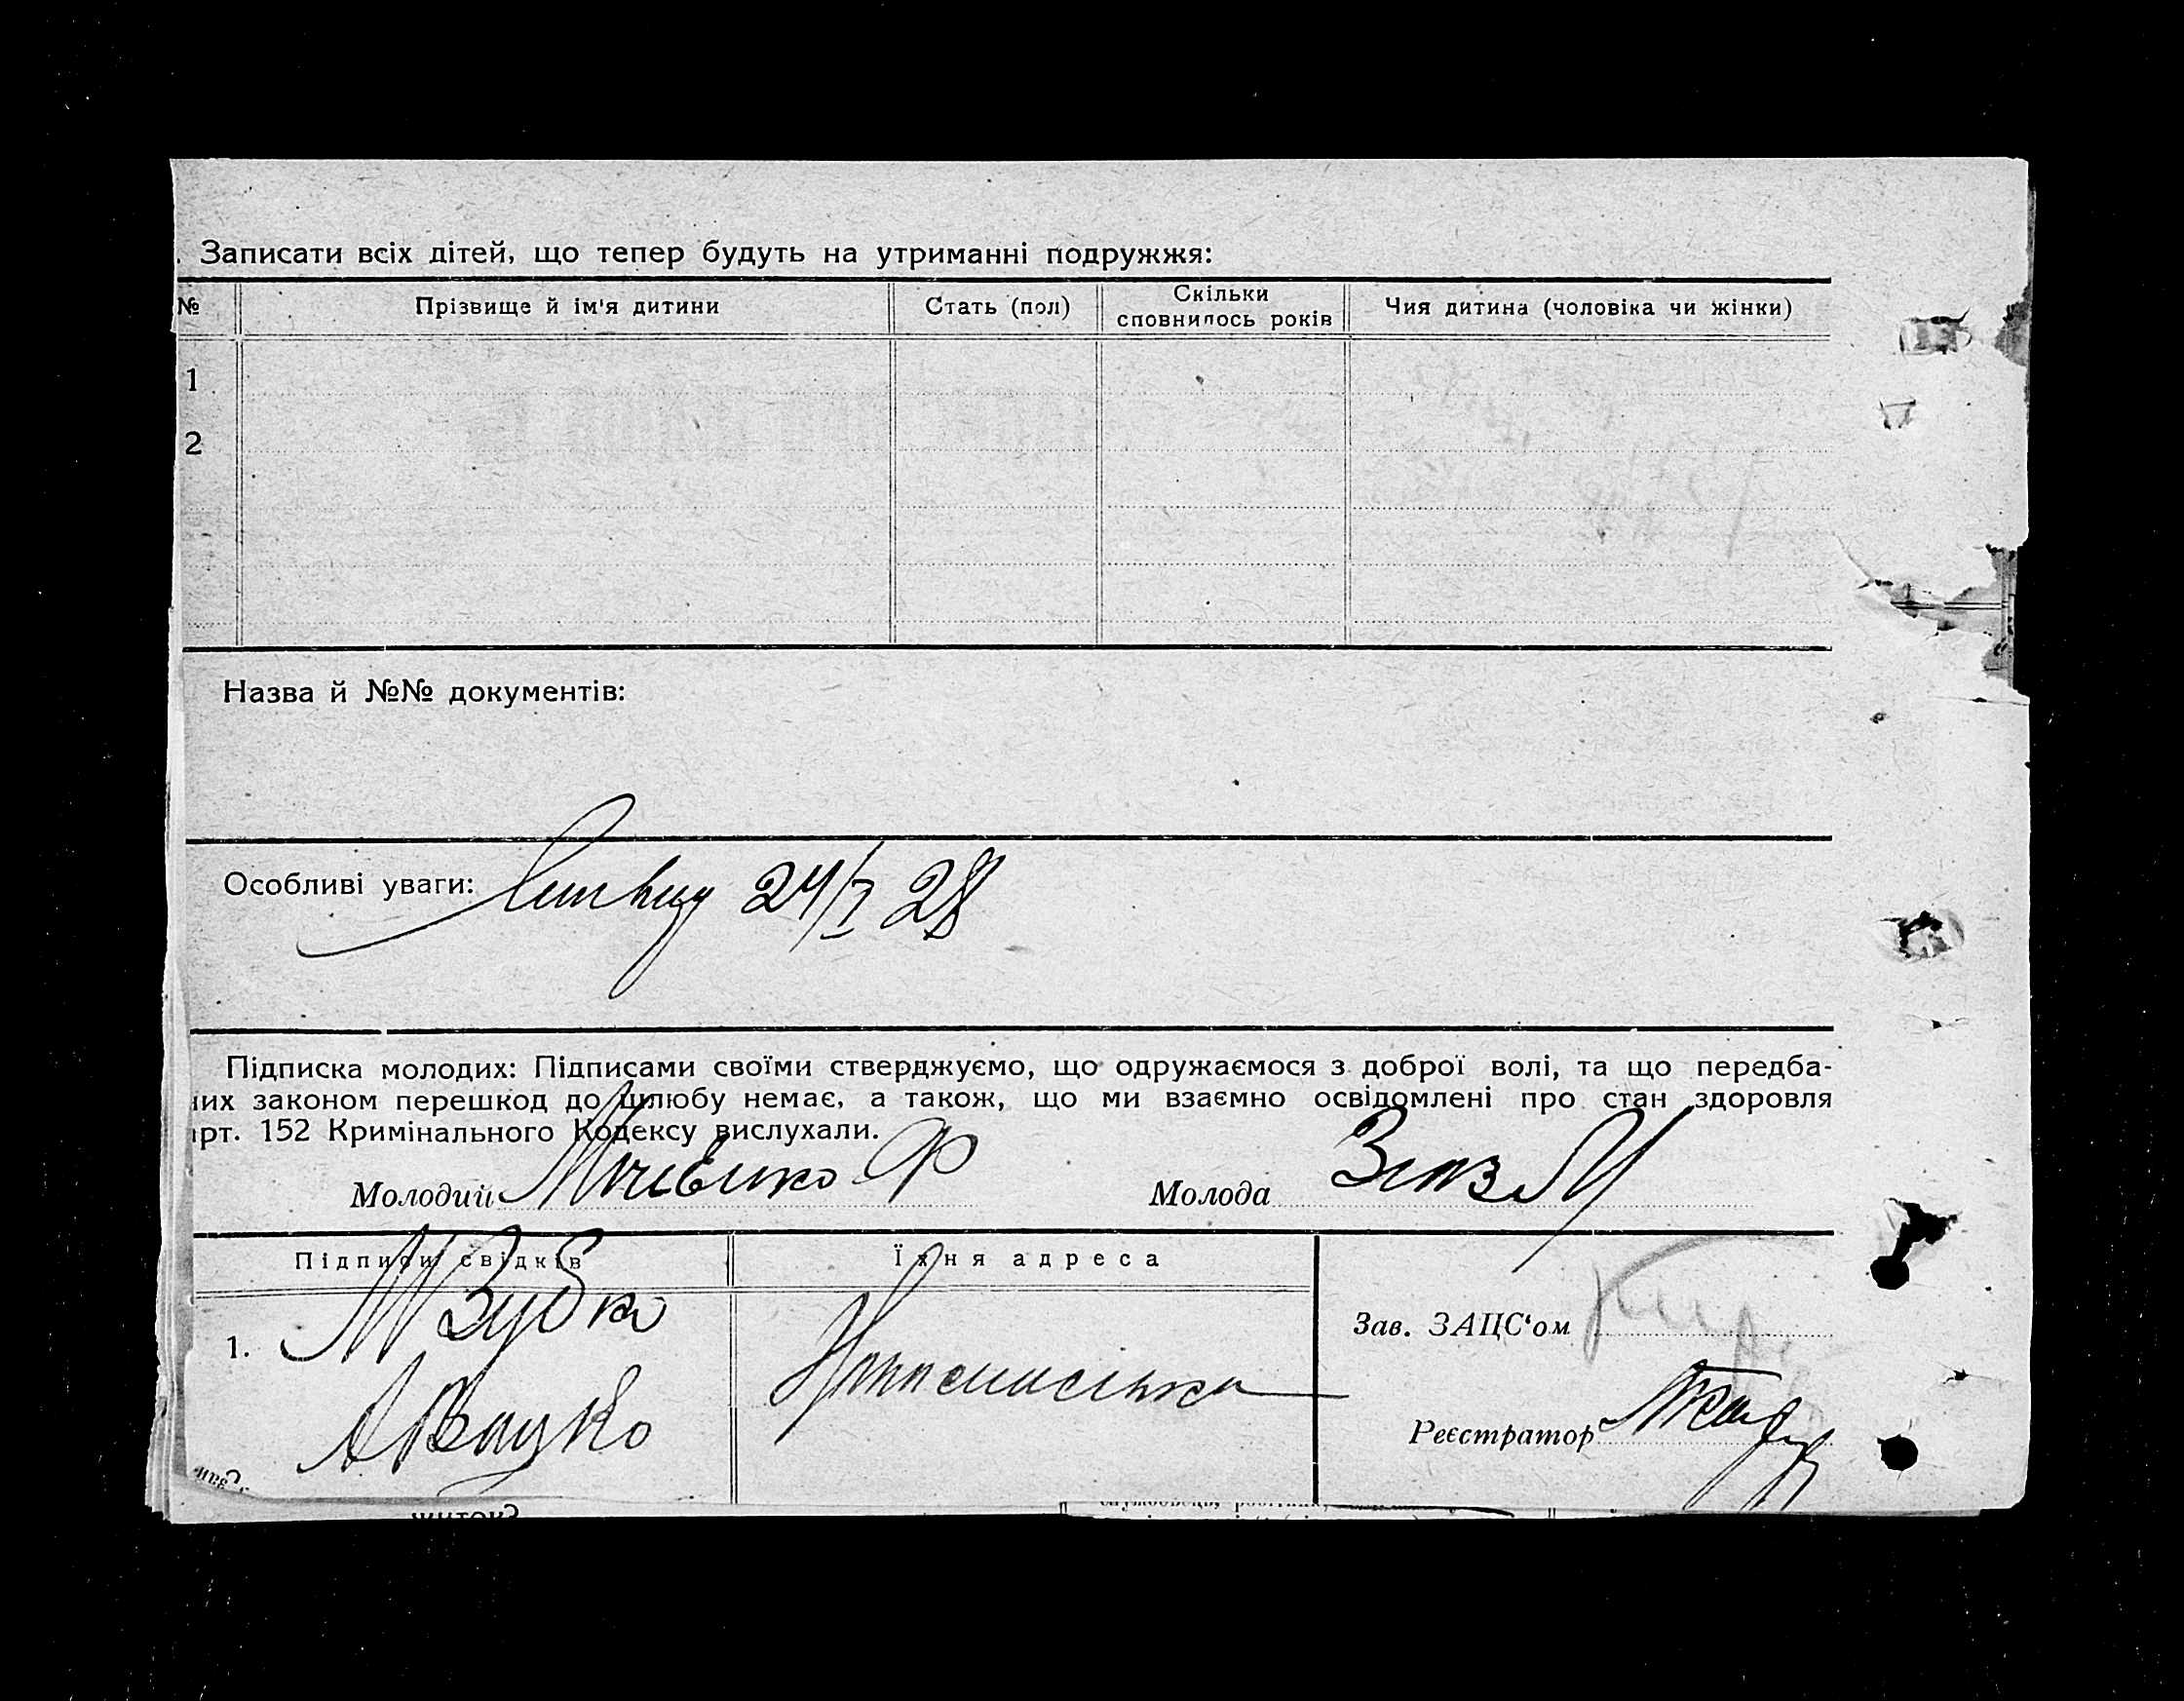 . Записати всіх дітей, що тепер будуть на утриманні подружжя:
№ Прізвище й ім'я дитини Стать (пол) Скільки сповнилось років Чия дитина (чоловіка чи жінки)
1
2
Назва й №№ документів:
Особливі уваги: 24/I 28
Підписка молодих: Підписами своїми стверджуємо, що одружаємося з доброї волі, та що передба-
их законом перешкод до шлюбу немає, а також, що ми взаємно освідомлені про стан здоровля
арт. 152 Кримінального Кодексу вислухали.
Молодий Ф Молода
Підписи свідків Їхня адреса
М Зубко
Зав. ЗАЦС'ом
1.
Реєстратор